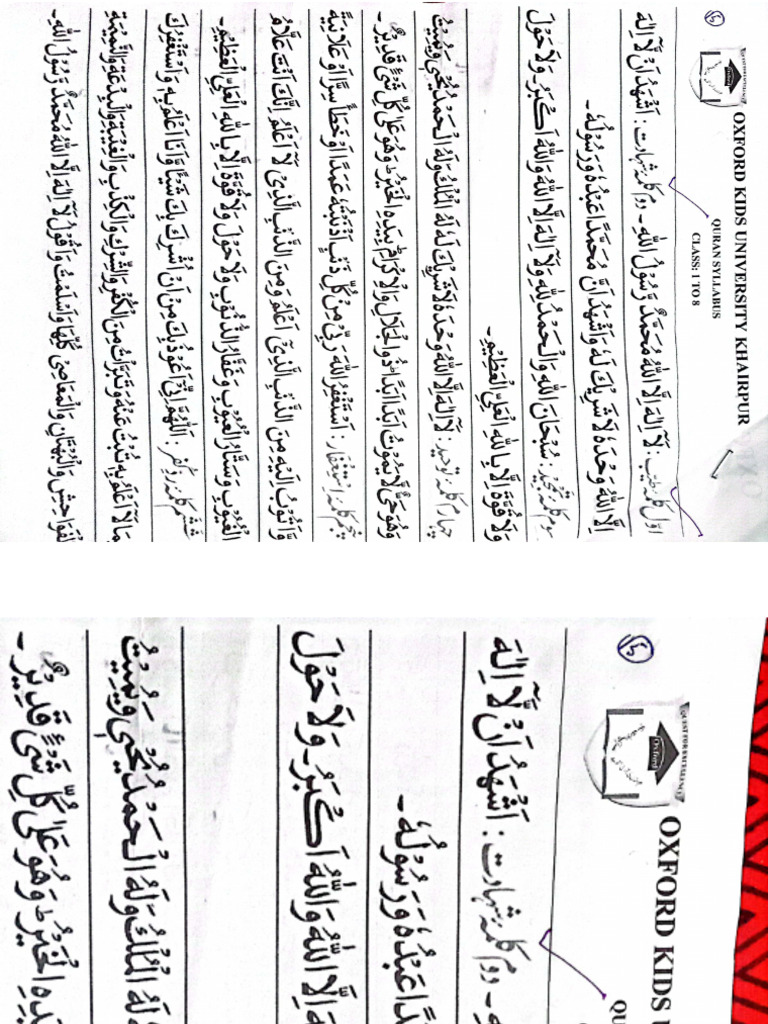 OXFORD KIDS UNIVERSITY KHAIRPUR
QURAN SYLLABUS
CLASS: 1 TO 8
Oxford
اوّل کلمہ طیب: لَآ اِلٰهَ اِلَّا اللّٰهُ مُحَمَّدٌ رَّسُوْلُ اللّٰهِ۔ دوم کلمہ شہادت: اَشْهَدُ اَنْ لَّآ اِلٰهَ
اِلَّا اللّٰهُ وَحْدَهٗ لَا شَرِيْكَ لَهٗ وَاَشْهَدُ اَنَّ مُحَمَّدًا عَبْدُهٗ وَرَسُوْلُهٗ۔
سوم کلمہ تمجید: سُبْحَانَ اللّٰهِ وَالْحَمْدُ لِلّٰهِ وَلَآ اِلٰهَ اِلَّا اللّٰهُ وَاللّٰهُ اَكْبَرُ۔ وَلَا حَوْلَ
وَلَا قُوَّةَ اِلَّا بِاللّٰهِ الْعَلِيِّ الْعَظِيْمِ۔
چہارم کلمہ توحید: لَآ اِلٰهَ اِلَّا اللّٰهُ وَحْدَهٗ لَا شَرِيْكَ لَهٗ لَهُ الْمُلْكُ وَلَهُ الْحَمْدُ يُحْيٖ وَيُمِيْتُ
وَهُوَ حَيٌّ لَّا يَمُوْتُ اَبَدًا اَبَدًا ذُو الْجَلَالِ وَالْاِكْرَامِ بِيَدِهِ الْخَيْرُ وَهُوَ عَلٰى كُلِّ شَیْءٍ قَدِيْرٌ۔
پنجم کلمہ استغفار: اَسْتَغْفِرُ اللّٰهَ رَبِّیْ مِنْ كُلِّ ذَنْۢبٍ اَذْنَبْتُهٗ عَمَدًا اَوْ خَطَأً سِرًّا اَوْ عَلَانِيَةً
وَّاَتُوْبُ اِلَيْهِ مِنَ الذَّنْۢبِ الَّذِیْٓ اَعْلَمُ وَمِنَ الذَّنْۢبِ الَّذِیْ لَآ اَعْلَمُ اِنَّكَ اَنْتَ عَلَّامُ
الْغُيُوْبِ وَسَتَّارُ الْعُيُوْبِ وَغَفَّارُ الذُّنُوْبِ وَلَا حَوْلَ وَلَا قُوَّةَ اِلَّا بِاللّٰهِ الْعَلِيِّ الْعَظِيْمِ۔
ششم کلمہ ردِّ کفر: اَللّٰهُمَّ اِنِّیْٓ اَعُوْذُ بِكَ مِنْ اَنْ اُشْرِكَ بِكَ شَيْئًا وَّاَنَا اَعْلَمُ بِهٖ وَاَسْتَغْفِرُكَ
لِمَا لَآ اَعْلَمُ بِهٖ تُبْتُ عَنْهُ وَتَبَرَّاْتُ مِنَ الْكُفْرِ وَالشِّرْكِ وَالْكِذْبِ وَالْغِيْبَةِ وَالْبِدْعَةِ وَالنَّمِيْمَةِ
الْفَوَاحِشِ وَالْبُهْتَانِ وَالْمَعَاصِیْ كُلِّهَا وَاَسْلَمْتُ وَاَقُوْلُ لَآ اِلٰهَ اِلَّا اللّٰهُ مُحَمَّدٌ رَّسُوْلُ اللّٰهِ۔
QUEST FOR EXCELLENCE
Oxford
OXFORD KIDS
QU
دوم کلمہ شہادت: اَشْهَدُ اَنْ لَّآ اِلٰهَ
عَبْدُهٗ وَرَسُوْلُهٗ۔
اِلَّا اللّٰهُ وَاللّٰهُ اَكْبَرُ۔ وَلَا حَوْلَ
لَهُ الْمُلْكُ وَلَهُ الْحَمْدُ يُحْيٖ وَيُمِيْتُ
الْخَيْرُ وَهُوَ عَلٰى كُلِّ شَیْءٍ قَدِيْرٌ۔